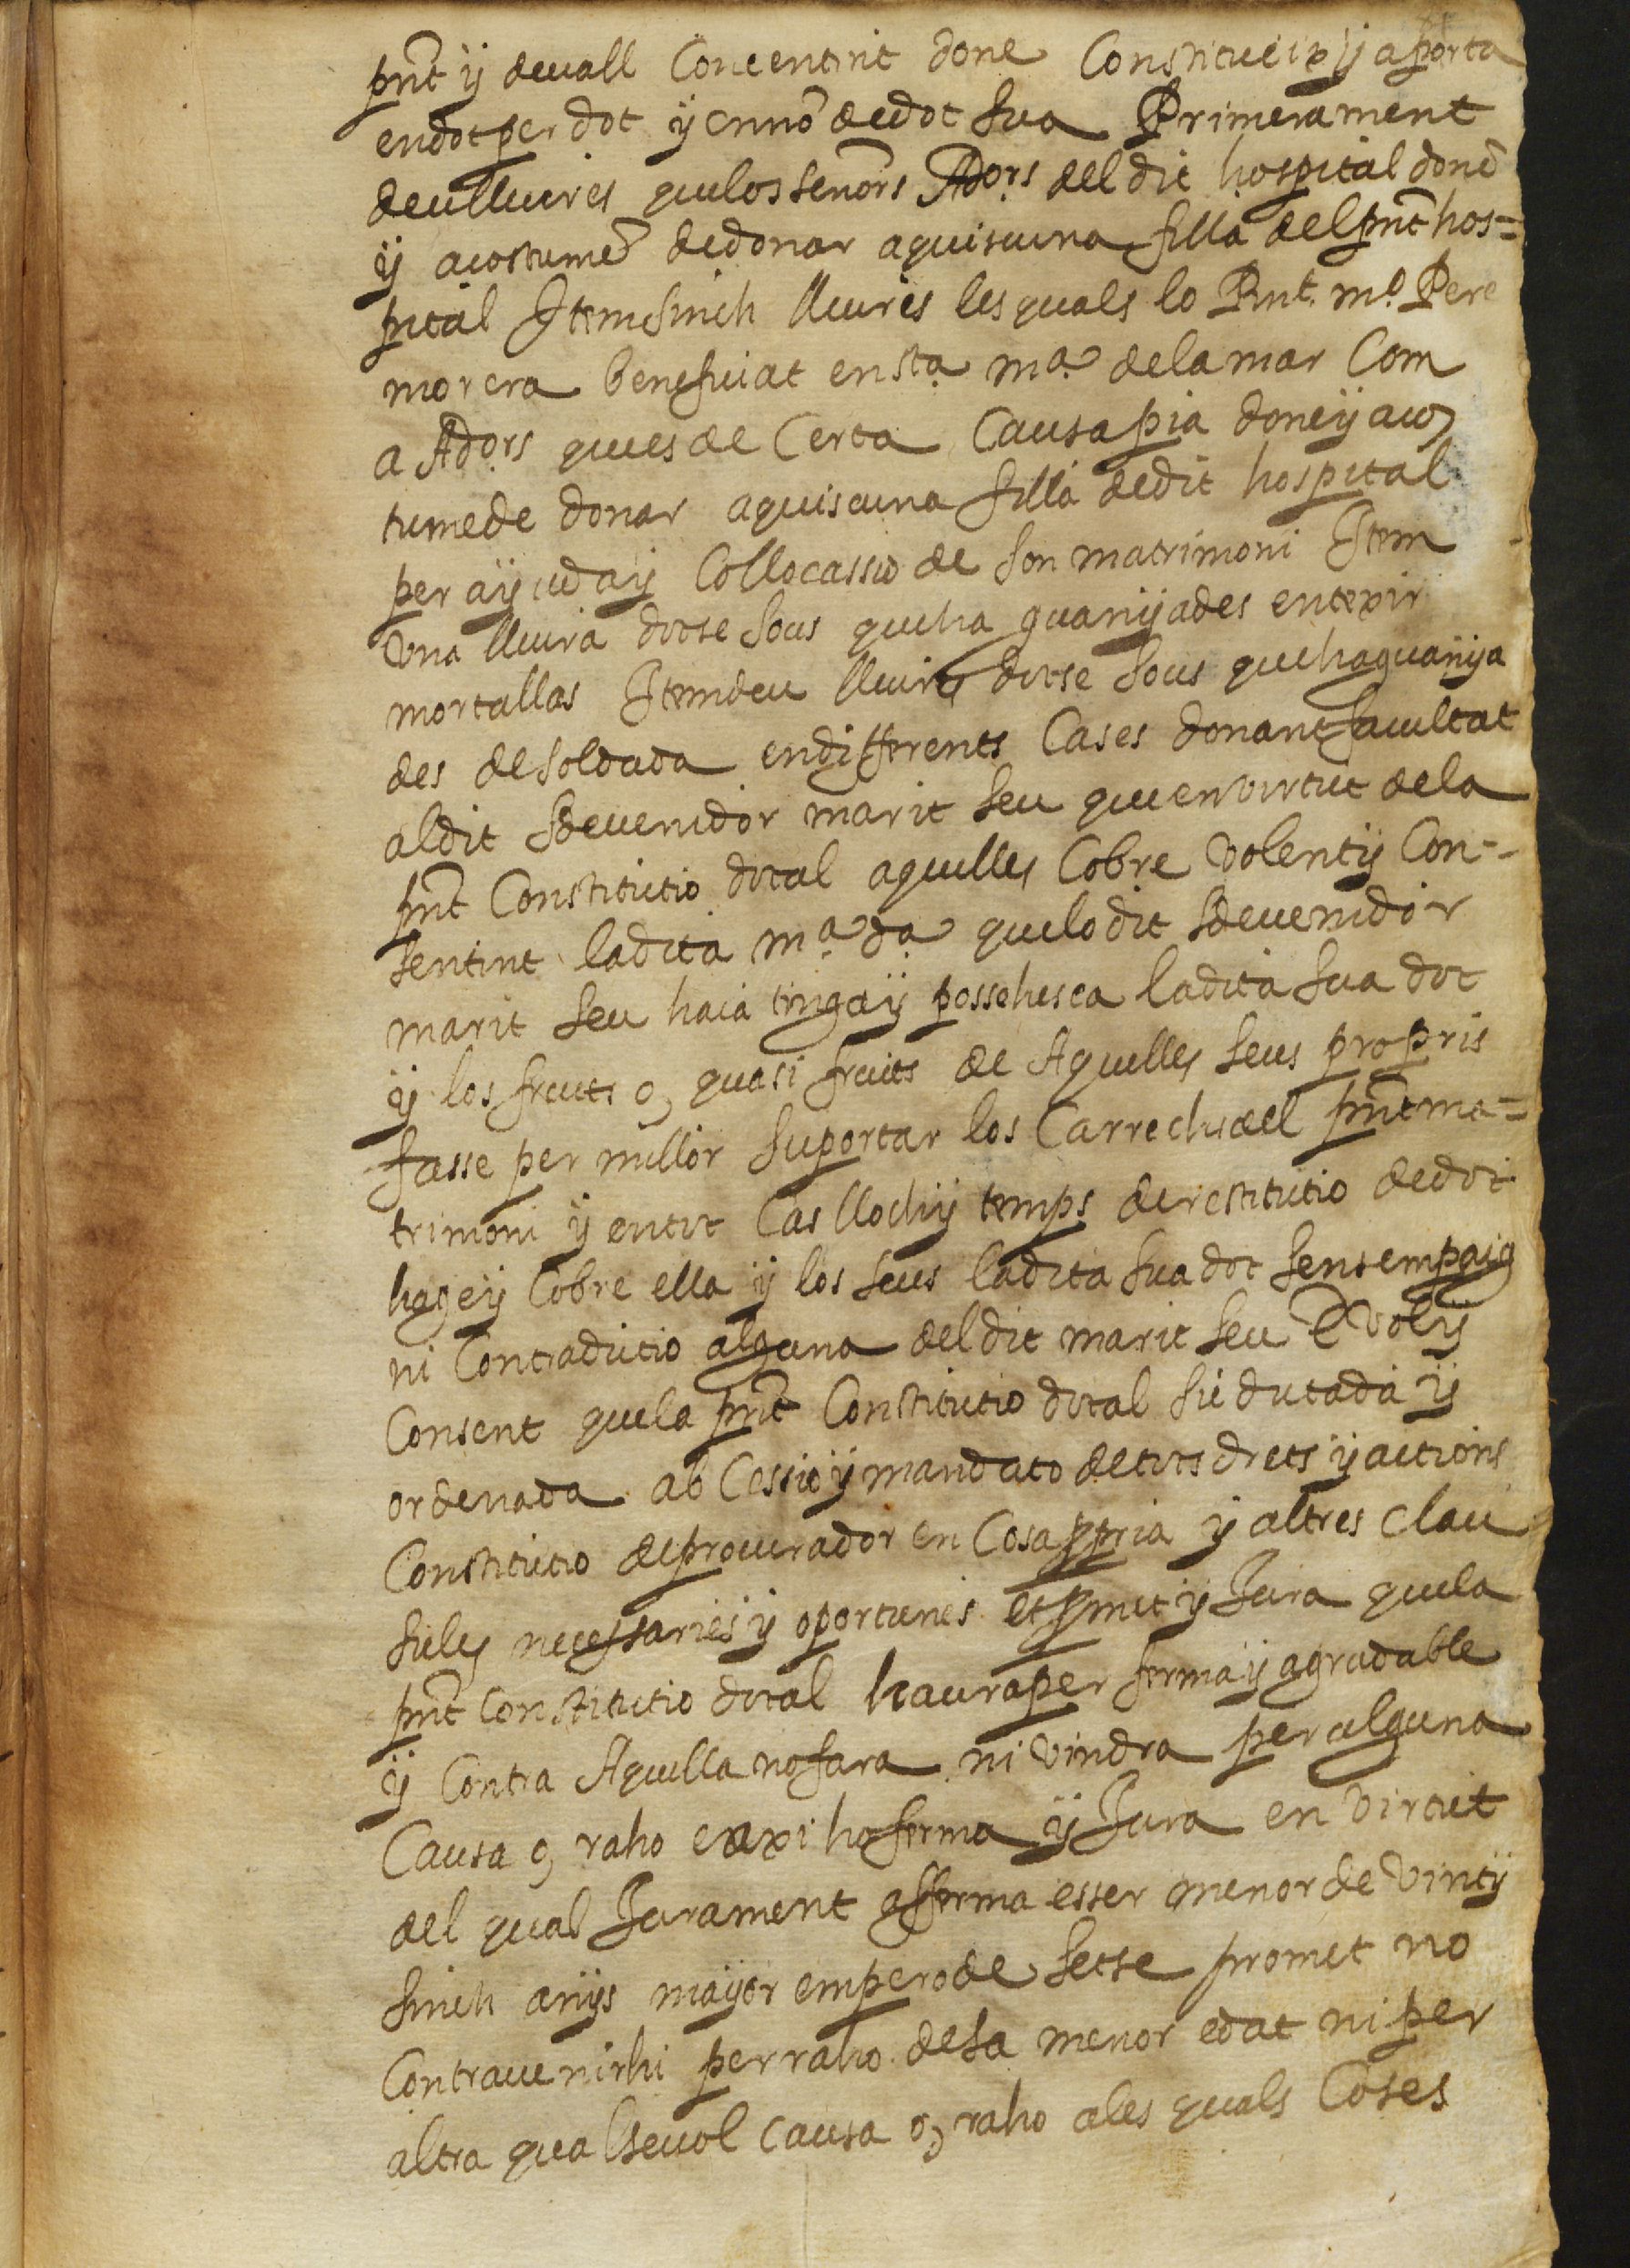 pnt ÿ devall Concentint done Constitueix ÿ aporta
en dot per dot ÿ en nō de dot sua Primerament
deu lliures que los Senors Ados.rs del dit hospital donē
ÿ acostumē de donar a quiscuna filla del pnt hos=
pital Item sinch lliures les quals lo Rnt. m.o Pere
morera beneficiat en s.ta m.a de la mar Com
a Ados.rs que es de Certa Causa pia done ÿ acos
tume de donar a quiscuna filla de dit hospital
per aÿuda ÿ Collocassio de son matrimoni Item
Una lliura dotse sous que ha guanÿades en texir
mortallas Item deu lliures dotse sous que ha guanÿa
des de soldada en differents Cases donant facultat
al dit sdevenidor marit seu que en virtut de la
pnt Constitutio dotal aquelles Cobre volent ÿ Con-
sentint la dita m.a d.a que lo dit sdevenidor
marit seu haia tinga ÿ possehesca la dita sua dot
ÿ los fruits o, quasi fruits de Aquelles seus propris
fasse per millor suportar los Carrechs del pnt ma=
trimoni ÿ en tot Cas lloch ÿ temps de restitutio de dot
hage ÿ Cobre ella ÿ los seus la dita sua dot sens empaig
ni Contradictio alguna del dit marit seu E vol ÿ
Consent que la pnt Constitutio dotal sie dictada ÿ
ordenada ab Cessio ÿ mandato de tots drets ÿ actions
Constitutio de procurador en Cosa ppria ÿ altres clau
sules necessaries ÿ oportunes et pmet ÿ Jura que la
pnt Constitutio dotal haura per ferma ÿ agradable
ÿ Contra Aquella no fara ni vindra per alguna
Causa o, raho e axi ho ferma ÿ Jura en virtut
del qual Jurament afferma esser menor de vint ÿ
sinch anÿs maÿor empero de setse promet no
Contravenirhi per raho de sa menor edat ni per
altra qualsevol causa o, raho a les quals Coses